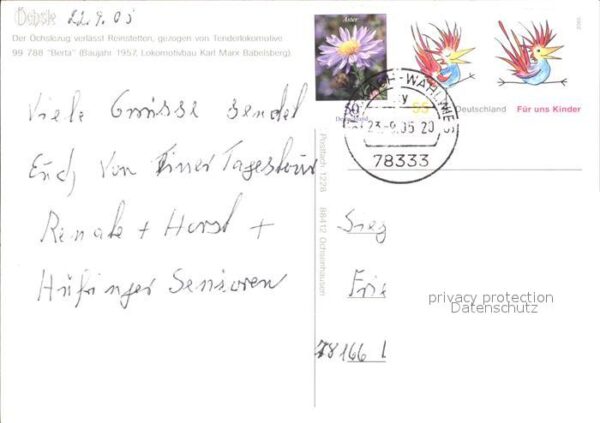 Öchsle 22.9.05
Der Öchslezug verlässt Reinstetten, gezogen von Tenderlokomotive
99 788 "Berta" (Baujahr 1957, Lokomotivbau Karl Marx Babelsberg).
Viele Grüsse sendet
Euch von Einer Tagestour
Renate + Horst +
Hüfinger Senioren
Aster
Deutschland
55
Deutschland
Für uns Kinder
23.-9.05-20
78333
Postfach 1228 88412 Ochsenhausen
Sieg
Frie
78166
privacy protection
Datenschutz